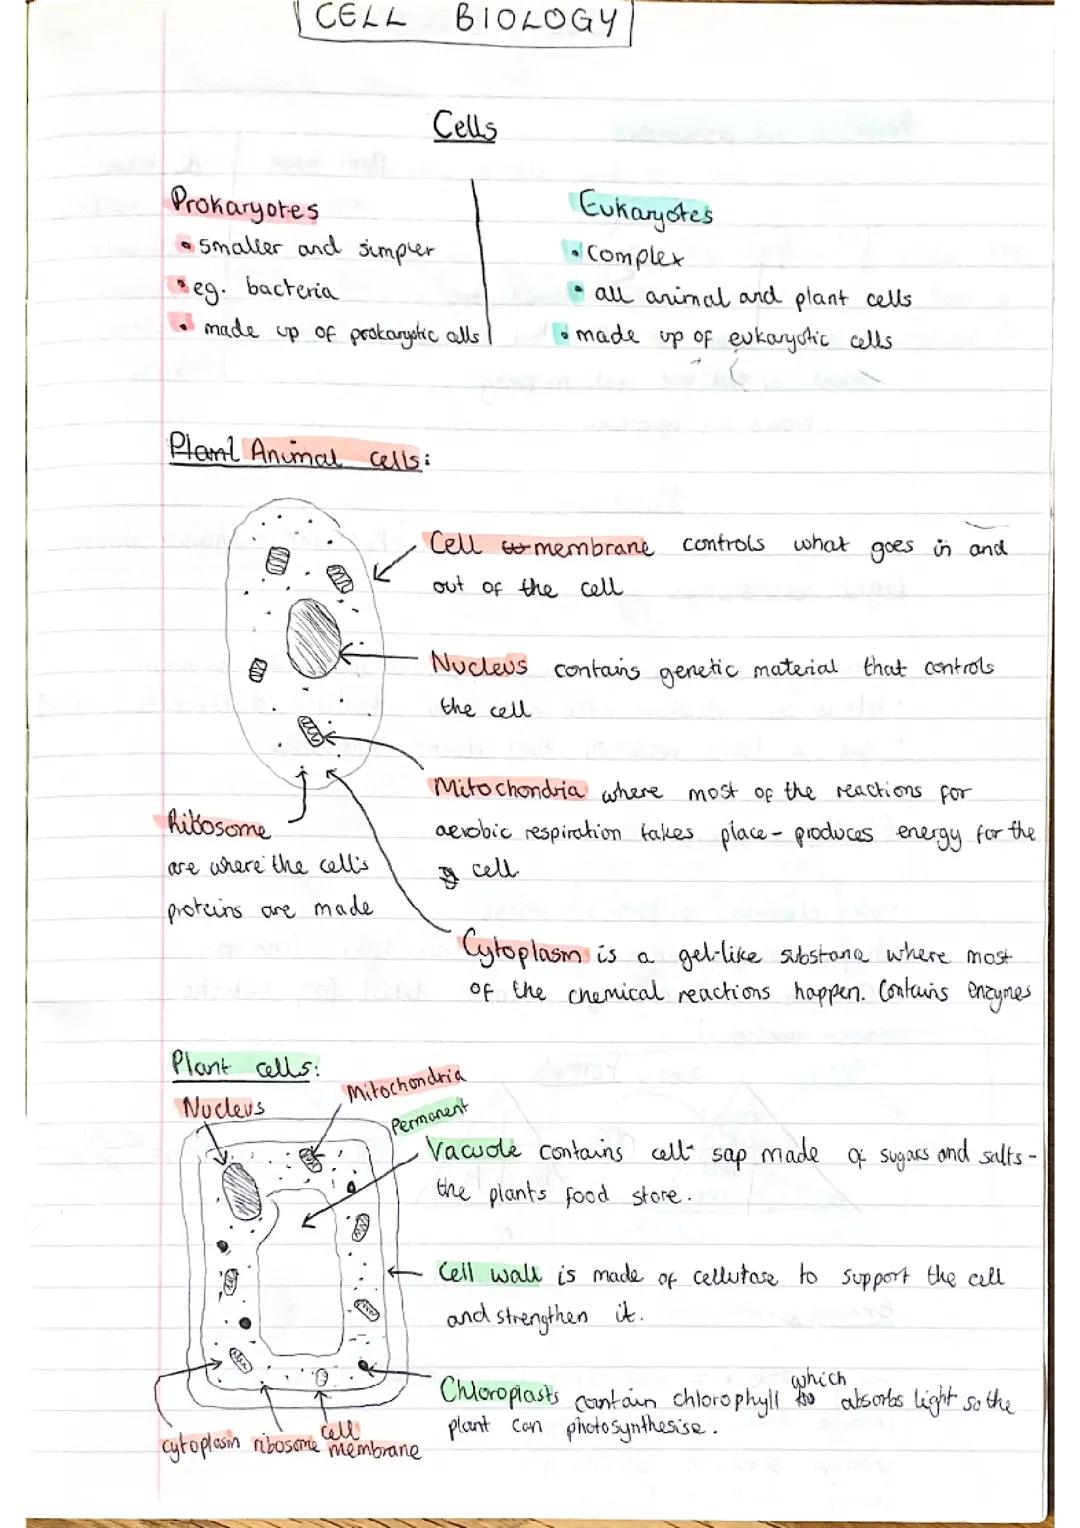 CELL BIOLOGY
Cells
Prokaryotes
• smaller and simpler
• eg. bacteria
• made up of prokaryotic cells
Eukaryotes
• Complex
• all animal and plant cells
• made up of eukaryotic cells
Plant Animal cells:
Cell membrane controls what goes in and
out of the cell
Nucleus contains genetic material that controls
the cell
Mitochondria where most of the reactions for
aerobic respiration takes place - produces energy for the
cell.
Ribosome
are where the cell's
proteins are made
Cytoplasm is a gel-like substance where most
of the chemical reactions happen. Contains enzymes
Plant cells:
Nucleus
Mitochondria
Permanent
Vacuole contains cell sap made of sugars and salts -
the plants food store.
Cell wall is made of cellulose to support the cell
and strengthen it.
Chloroplasts contain chlorophyll which absorbs light so the
plant can photosynthesise.
cytoplasm ribosome cell
membrane